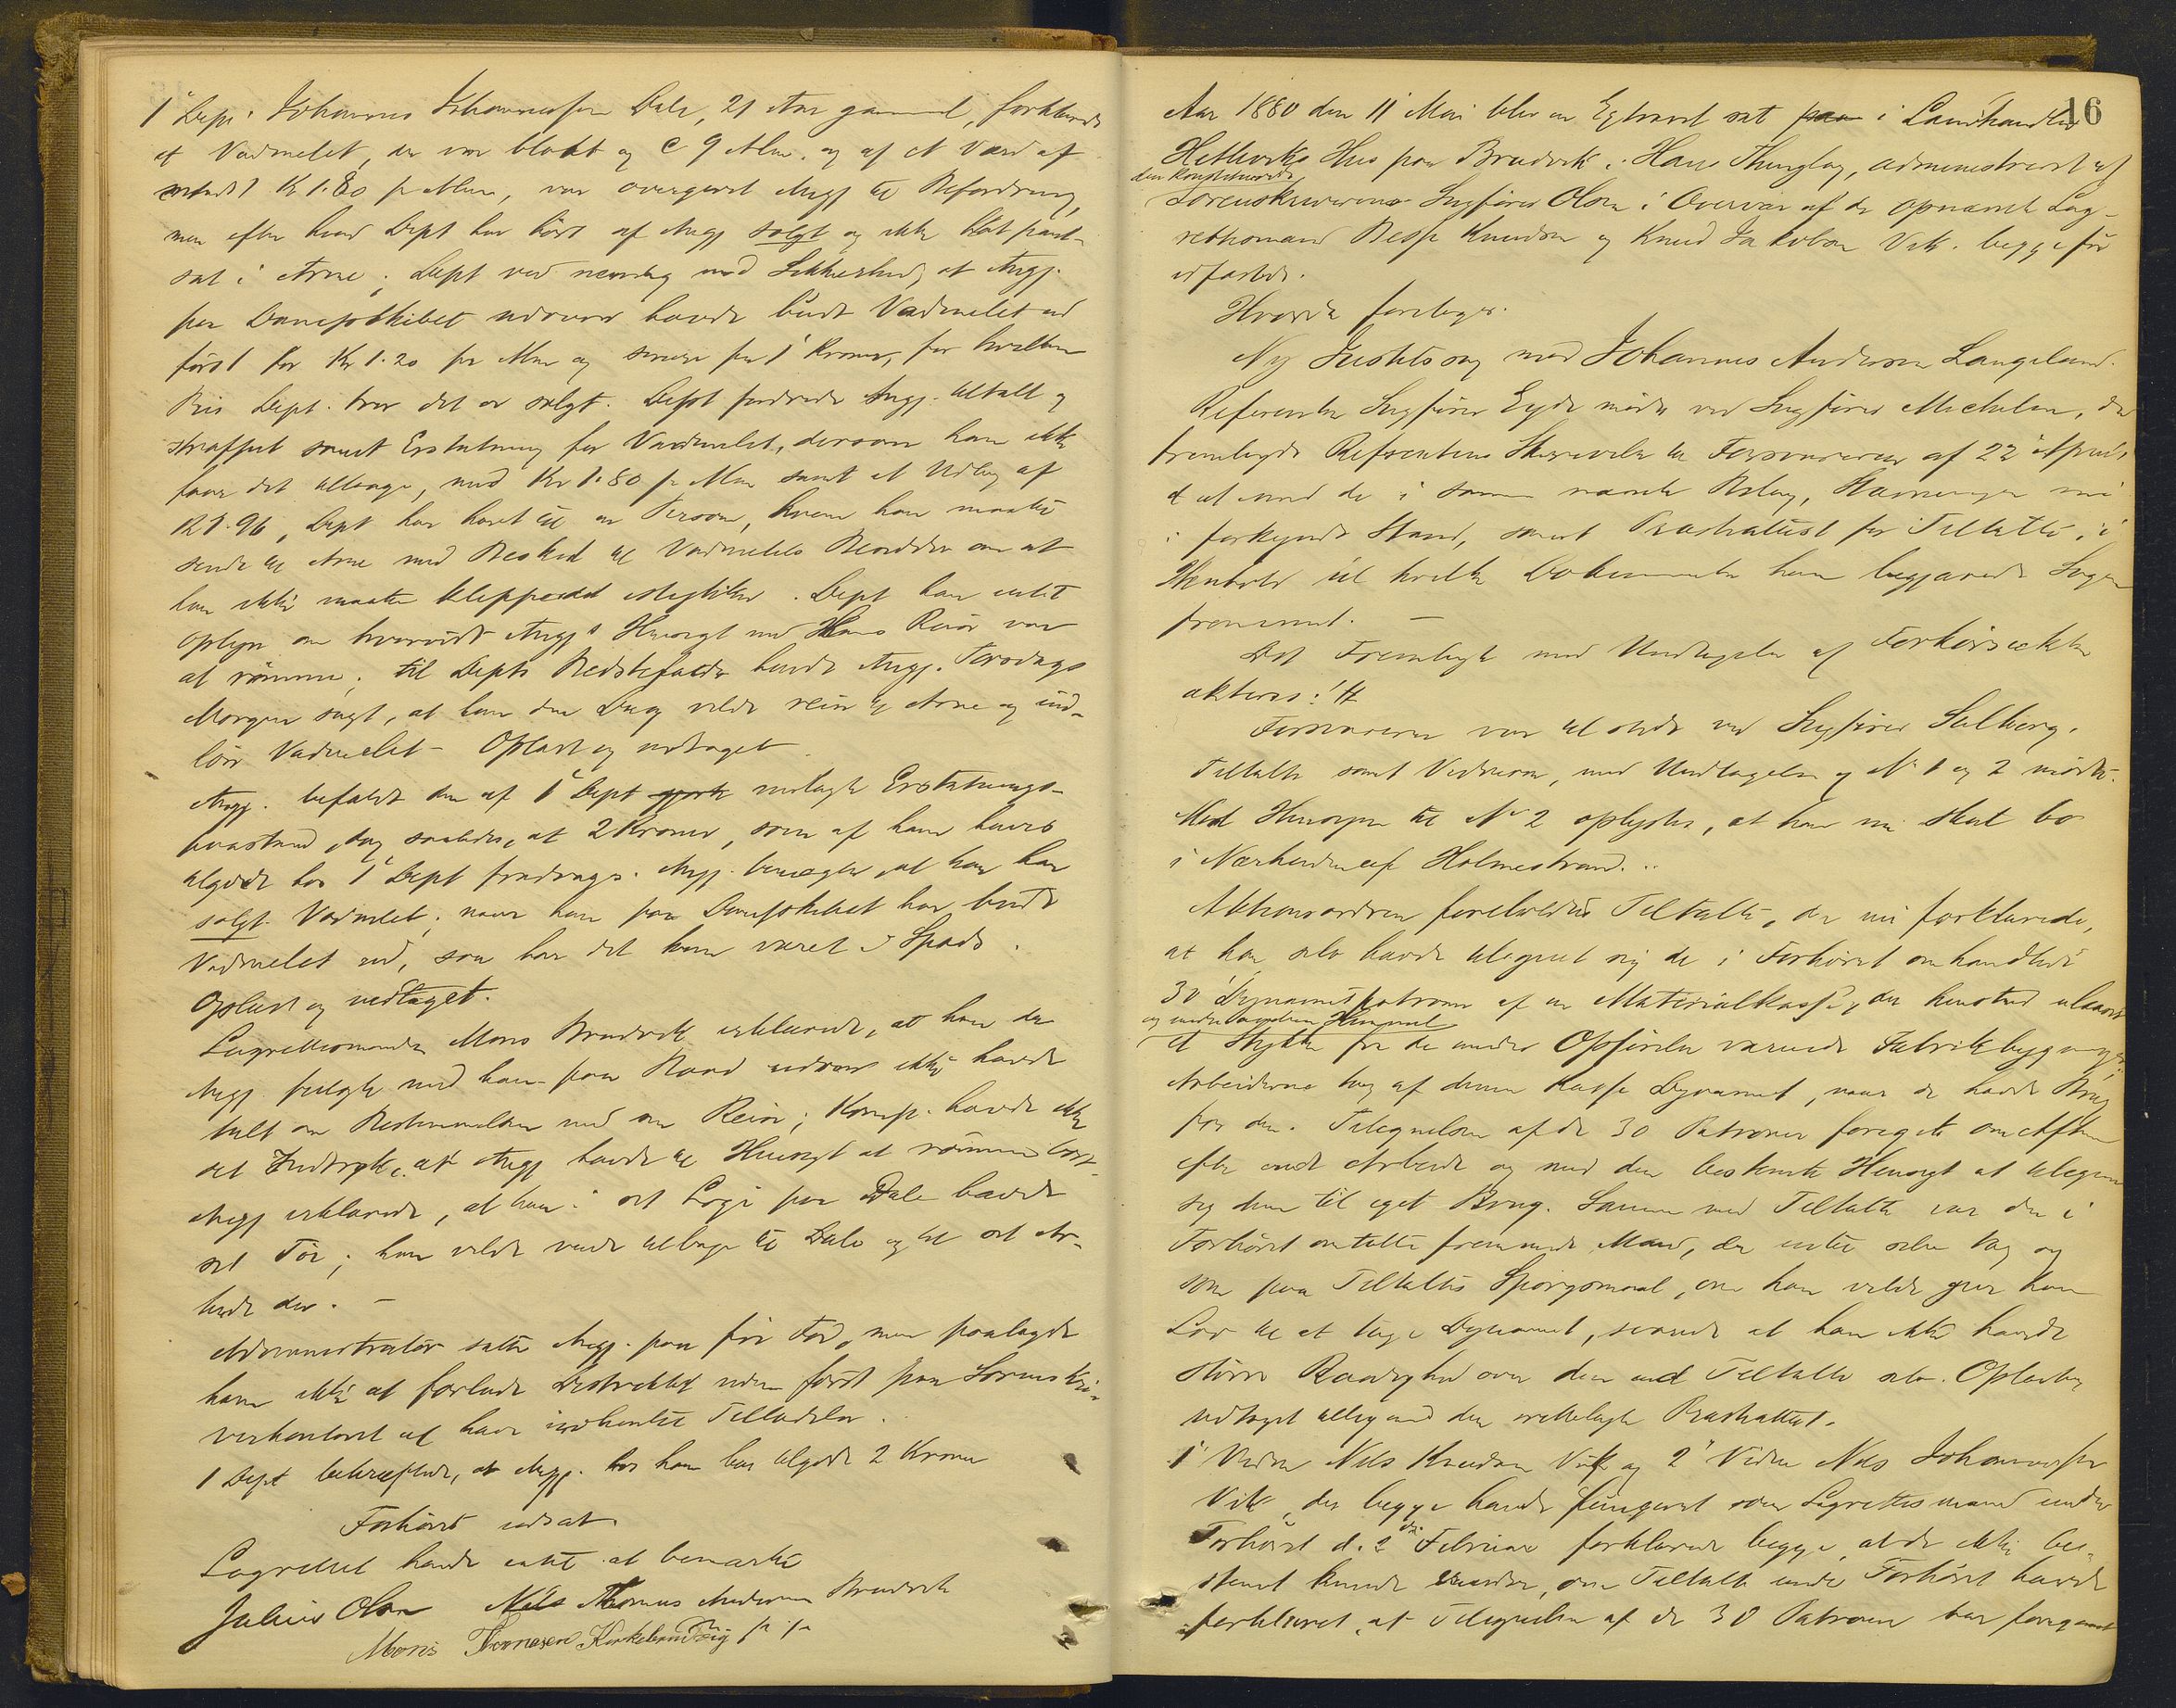 1ste Dept. Johannes Johannessen Dale, 21 Aar gammel, forklarede
at Vadmelet, der var blaat og C 9 Alen, og af et Værd af
mindst Kr 1.80 pr Alen, var overgivet Angj til Befordring,
men efter hvad Dept har hørt af Angj solgt og ikke blot pant-
sat i Arne; Dept ved nemlig med Sikkerhed, at Angj.
paa Dampskibet udover havde budt Vadmelet ud
først for Kr 1.20 pr Alen og senere for 1 Krone, for hvilken
Pris Dept. tror det er solgt. Dept fordrede Angj. tiltalt og
straffet samt Erstatning for Vadmelet, dersom han ikke
faar det tilbage, med Kr 1.80 pr Alen samt et Udlæg af
Kr 1.96, Dept har havt til en Person, hvem han maatte
sende til Arne med Besked til Vadmelets Bereder om at
han ikke maatte klippe det istykker. Dept kan intet
oplyse om hvorvidt Angjs Hensigt med Hans Reise var
at rømme; til Depts Bedstefader havde Angj. Torsdags
Morgen sagt, at han den Dag vilde reise til Arne og ind-
løse Vadmelet – Oplæst og vedtaget.
Angj. befaldt den af 1ste Dept gjorte nedlagte Erstatnings-
paastand, dog saaledes, at 2 Kroner, som af ham haves
tilgode hos 1ste Dept fradrages. Angj. benægter, at han har
solgt Vadmelet; naar han paa Dampskibet har budt
Vadmelet ud, saa har det kun været i Spøg.
Oplæst og vedtaget.
Lagrettesmanden Mons Brudvik erklærede, at han da
Angj fulgte med ham paa Baad udover ikke havde
talt om Bestemmelsen med sin Reise; Komp. havde ikke
det Indtryk, at Angj havde til Hensigt at rømme bort.
Angj erklærede, at han i sit Logi paa Dale havde
sit Tøi; han vilde vende tilbage til Dale og til sit Ar-
beide der. –
Administrator satte Angj. paa fri Fod, men paalagde
ham ikke at forlade Distriktet uden først paa Sorenskri-
verkontoret at have indhentet Tilladelse.
1 Dept bekræftede, at Angj. hos ham har tilgode 2 Kroner
Forhøret udsat.
Lagrettet havde intet at bemærke
Julius Olsen Nils Thomas Andersen Brudvik
Mons Thomesen Kirkebrudvig p. p.
16
Aar 1880 den 11 Mai blev en Extraret sat paa i Landhandler
Hetlevigs Hus paa Brudvik i Haus Thinglag, administreret af
den konstituerede
Sorenskriverens Sagfører Olsen i Overvær af de opnævnte Lag-
rettesmænd Besse Knudsen og Knud Jakobsen Vik. begge før
edfæstede.
Hvorda foretoges:
Ny Justitssag mod Johannes Andersen Langeland.
Referenten Sagfører Eyde mødte ved Sagfører Michelsen, der
fremlagde Referentens Skrivelse til Forsvareren af 22 April
d A med de i samme nævnte Bilag, Stævningen nu
i forkyndt Stand, samt Præsteattest for Tiltalte, i
Henhold til hvilke Dokumenter han begjærede Sagen
fremmet. –
Det Fremlagte med Undtagelse af Forhørsakten
akteres: #
Forsvareren var tilstede ved Sagfører Salberg.
Tiltalte samt Vidnerne, med Undtagelse af No 1 og 2 mødte.
Med Hensyn til No 2 oplystes, at han nu skal bo
i Nærheden af Holmestrand..
Aktionsordren foreholdtes Tiltalte, der nu forklarede,
at han selv havde tilegnet sig de i Forhøret omhandlede
30 Dynamitpatroner af en Materialkasse, der henstod ulaaset
og under aaben Himmel
et Stykke fra de under Opførelse værende Fabrikbygninger.
Arbeiderne tog af denne Kasse Dynamit, naar de havde Brug
for den. Tilegnelsen af de 30 Patroner foregik om Aftenen
efter endt Arbeide og med den bestemte Hensigt at tilegne
sig dem til eget Brug. Sammen med Tiltalte var den i
Forhøret omtalte fremmede Mand, der intet selv tog og
som paa Tiltaltes Spørgsmaal, om han vilde give ham
Lov til at tage Dynamit, svarede at han ikke havde
større Raadighed over den end Tiltalte selv. Oplæst og
vedtaget tilligemed den irettelagte Præsteattest.
1ste Vidne Nils Knudsen Vik og 2det Vidne Nils Johannessen
Vik, der begge havde fungeret som Lagrettesmænd under
Forhøret d. 2den Februar forklarede begge, at de ikke be-
stemt kunde erindre, om Tiltalte under Forhøret havde
forklaret, at Tilegnelsen af de 30 Patroner var foregaaet